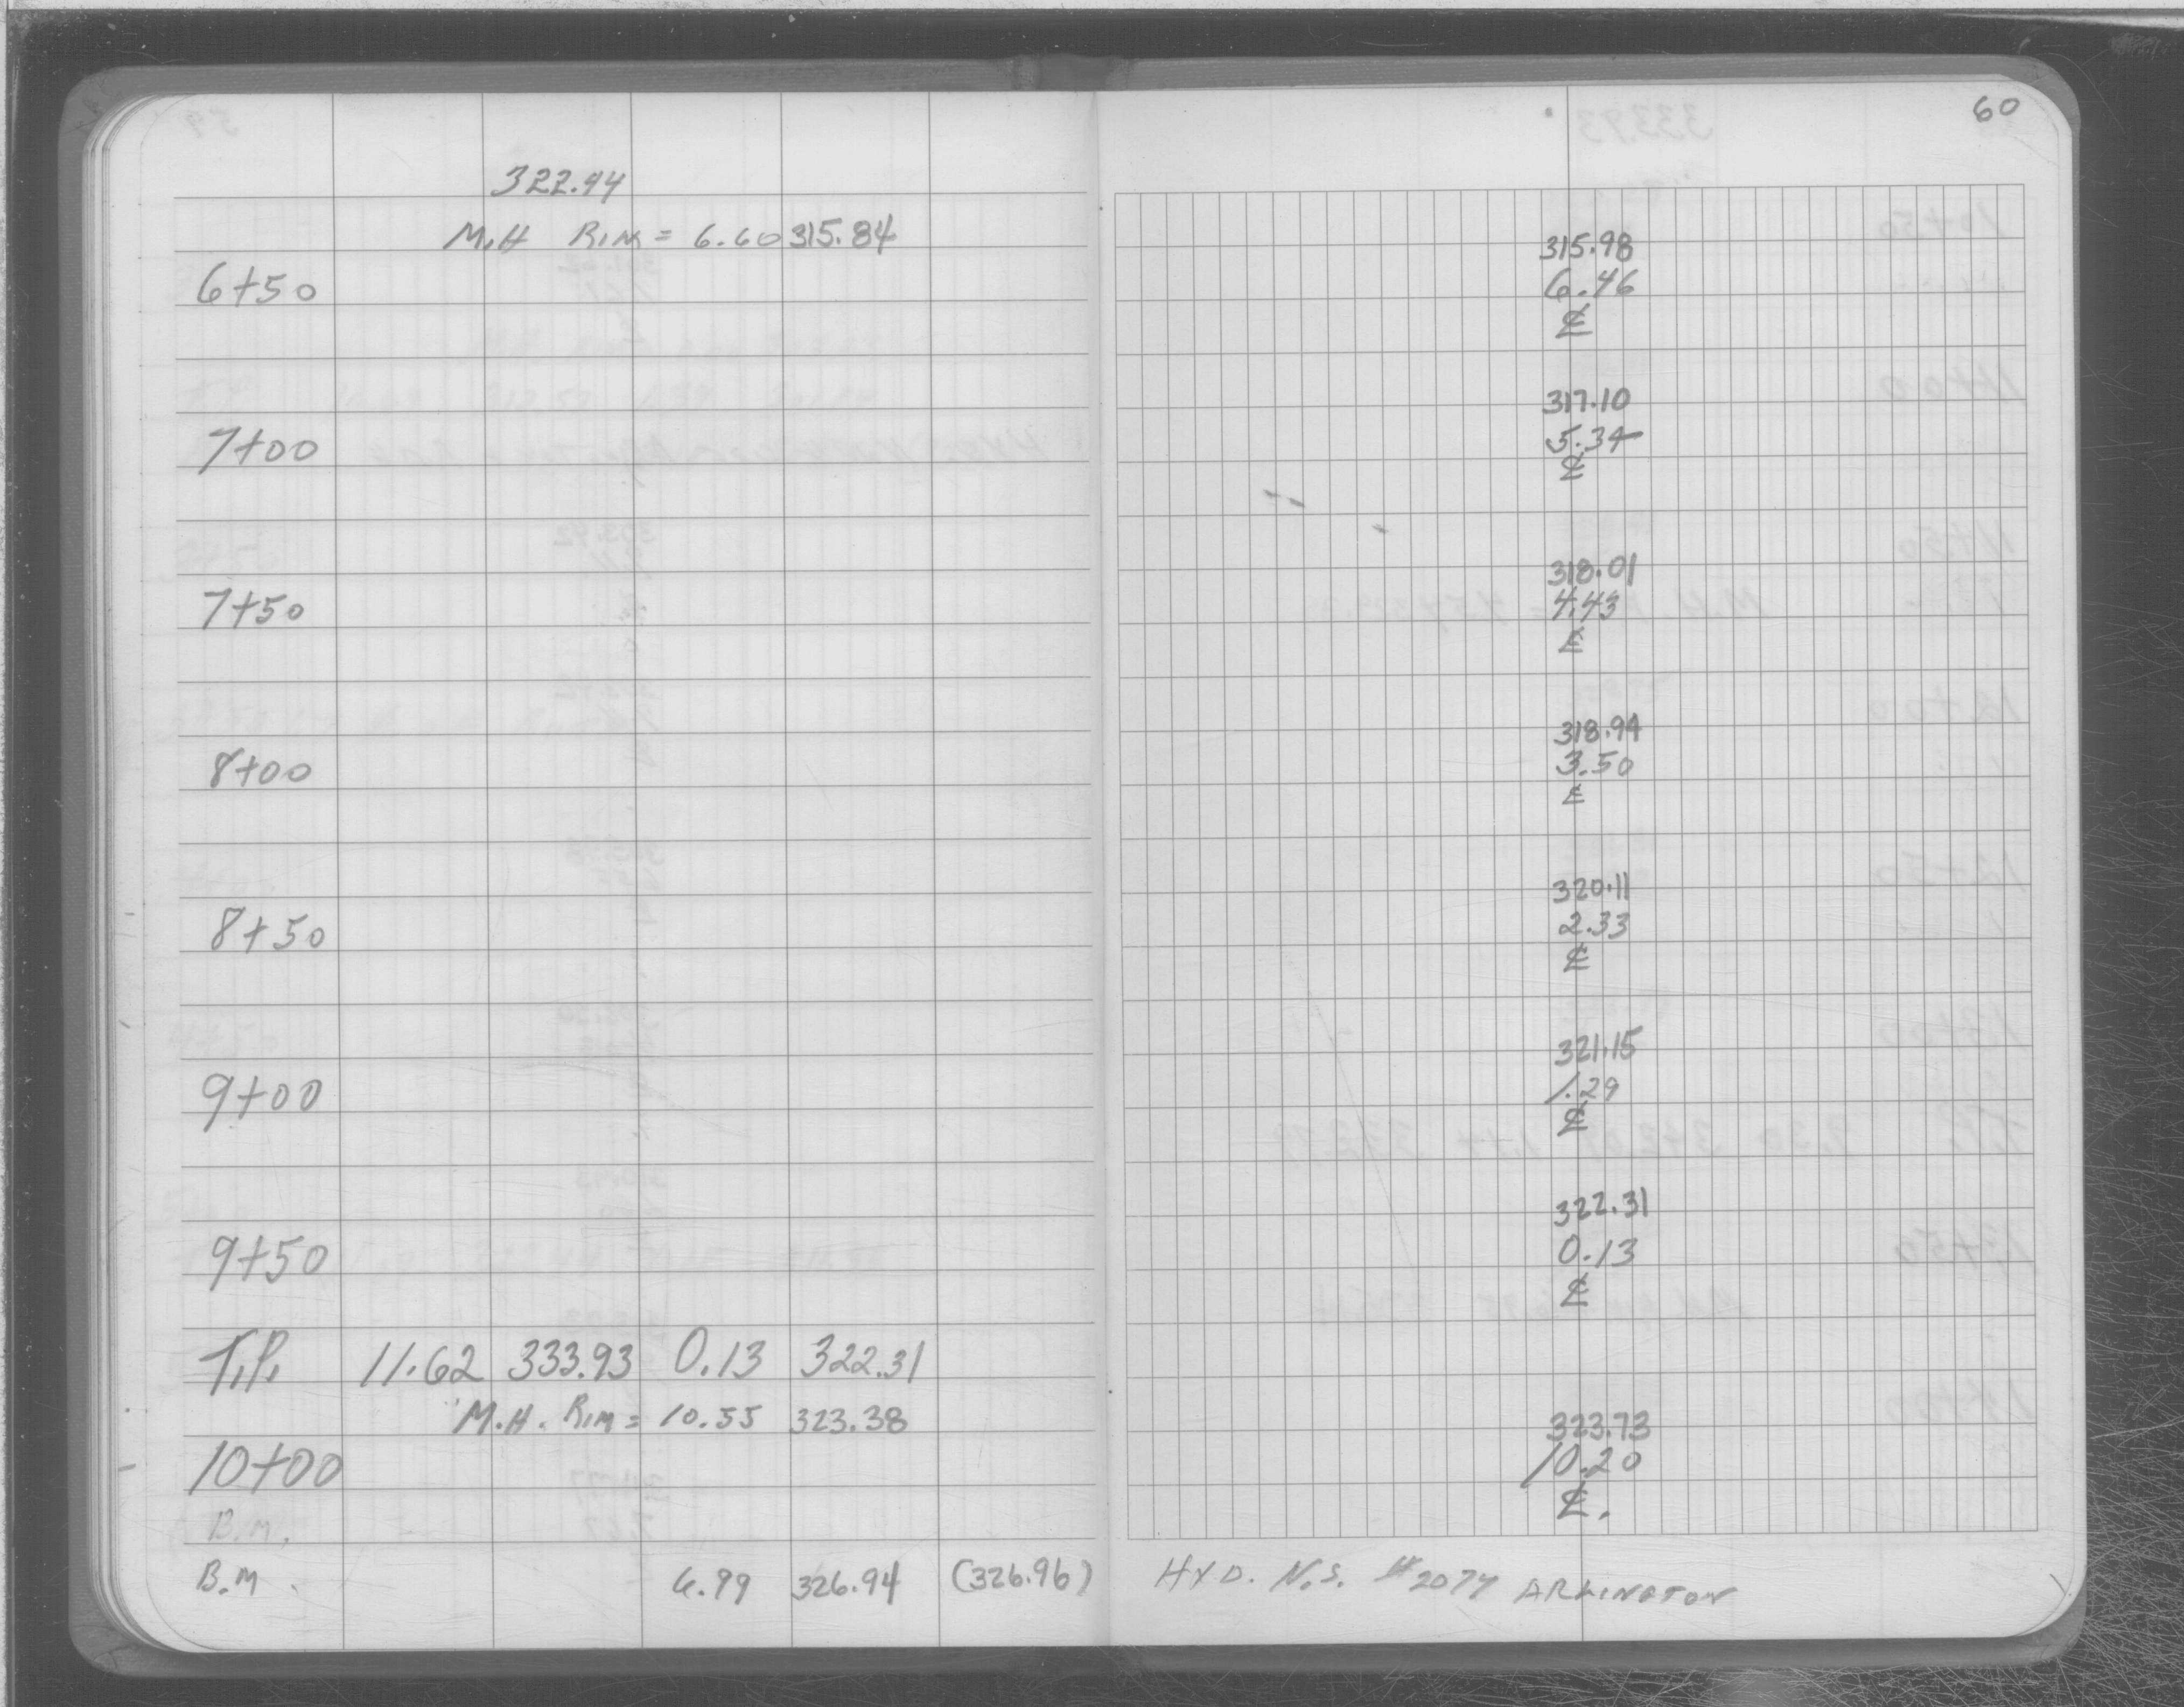 60
322.44
M.H RIM = 6.60 315.84
315.98
6+50 6.46
℄
317.10
7+00 5.34
℄
318.01
7+50 4.43
℄
318.94
8+00 3.50
℄
320.11
8+50 2.33
℄
321.15
9+00 1.29
℄
322.31
9+50 0.13
℄
T.P. 11.62 333.93 0.13 322.31
M.H. RIM = 10.55 323.38
323.73
10+00 10.20
℄.
B.M.
B.M. 6.99 326.94 (326.96) HYD. N.S. #2074 ARLINGTON